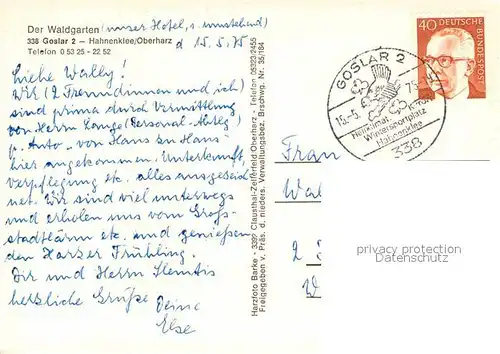 Der Waldgarten (unser Hotel, s. umstehend)
338 Goslar 2 – Hahnenklee/Oberharz
Telefon 0 53 25 - 22 52
d 15.5.75
Liebe Wally!
Wir (2 Freundinnen und ich)
sind prima durch Vermittlung
von Herrn Lange (Personal-Abtlg)
p. Auto - von Haus zu Haus -
hier angekommen. Unterkunft,
Verpflegung etc. alles ausgezeich
net. Wir sind viel unterwegs
und erholen uns vom Groß-
stadtlärm etc. und genießen
den Harzer Frühling.
Dir und Herrn
herzliche Grüße Deine
Else
Harzfoto Barke - 3392 Clausthal-Zellerfeld/Oberharz - Telefon 05323/2455
Freigegeben v. Präs. d. nieders. Verwaltungsbez. Brschwg. Nr. 35/164
GOSLAR 2
15.-5.75
Heilklimat. Kurort
Wintersportplatz
Hahnenklee
338
40 DEUTSCHE
BUNDESPOST
Frau
privacy protection
www.ansichtskartenversand.com